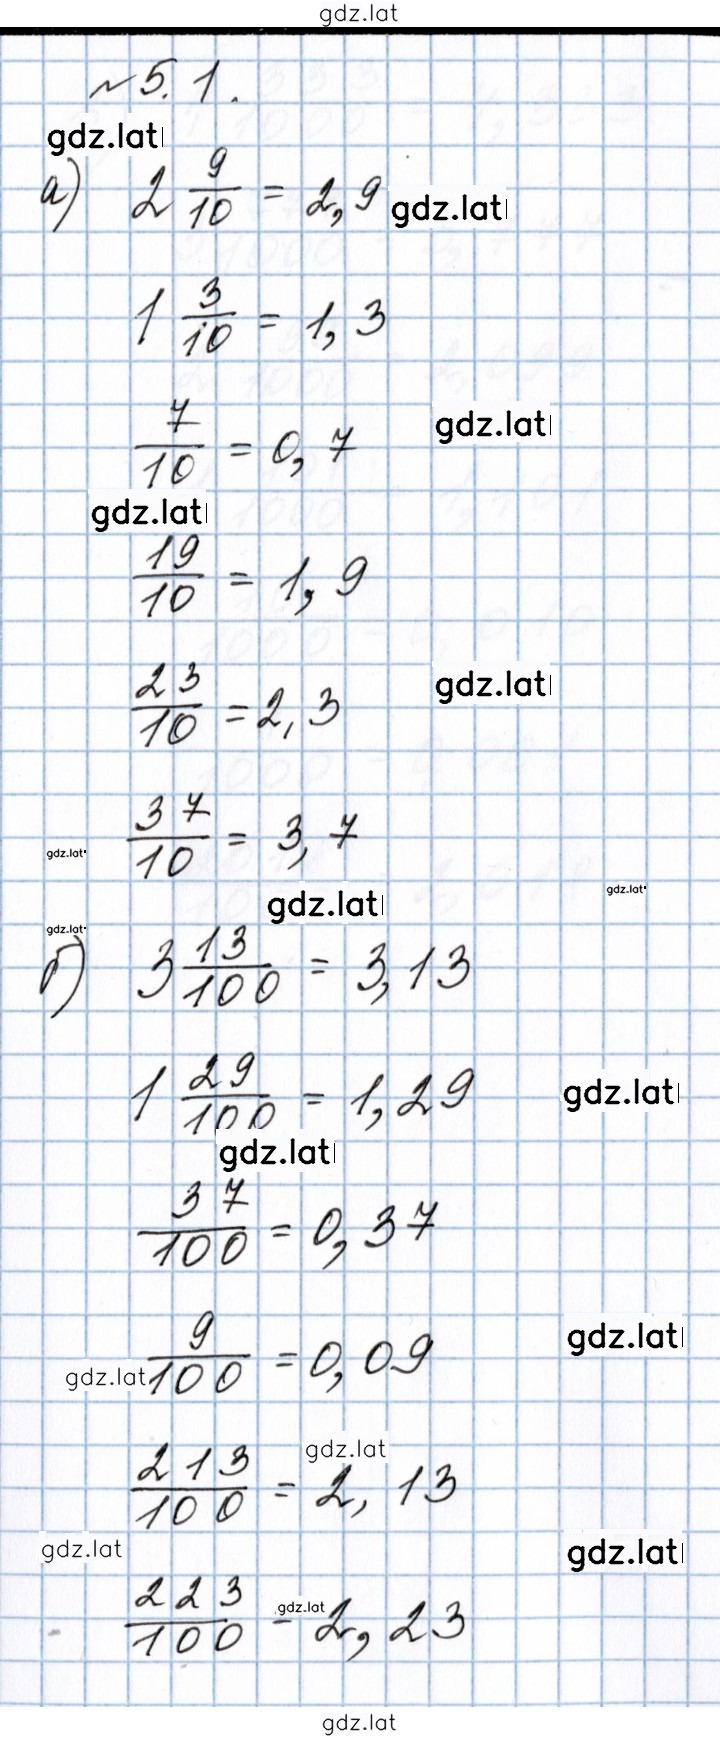 gdz.lat
№ 5.1.
gdz.lat
а) 2 9/10 = 2,9 gdz.lat
1 3/10 = 1,3
7/10 = 0,7 gdz.lat
gdz.lat
19/10 = 1,9
23/10 = 2,3 gdz.lat
37/10 = 3,7
gdz.lat
gdz.lat
gdz.lat
gdz.lat
б) 3 13/100 = 3,13
1 29/100 = 1,29 gdz.lat
gdz.lat
37/100 = 0,37
gdz.lat
9/100 = 0,09
gdz.lat
gdz.lat
213/100 = 2,13
gdz.lat
gdz.lat
223/100 = 2,23
gdz.lat
gdz.lat